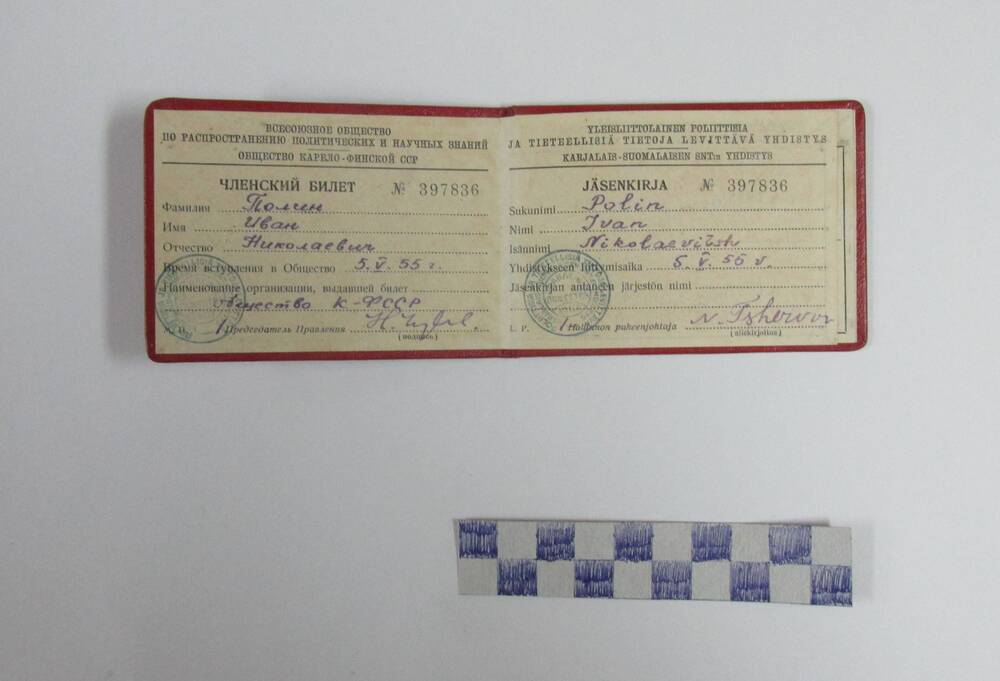 ВСЕСОЮЗНОЕ ОБЩЕСТВО
ПО РАСПРОСТРАНЕНИЮ ПОЛИТИЧЕСКИХ И НАУЧНЫХ ЗНАНИЙ
ОБЩЕСТВО КАРЕЛО-ФИНСКОЙ ССР
ЧЛЕНСКИЙ БИЛЕТ № 397836
Фамилия Полин
Имя Иван
Отчество Николаевич
Время вступления в Общество 5.V.55 г.
Наименование организации, выдавшей билет
Общество К-ФССР
Председатель Правления
(подпись)
YLEISLIITTOLAINEN POLIITTISIA
JA TIETEELLISIÄ TIETOJA LEVITTÄVÄ YHDISTYS
KARJALAIS-SUOMALAISEN SNT:n YHDISTYS
JÄSENKIRJA № 397836
Sukunimi Polin
Nimi Ivan
Isännimi Nikolaevitsh
Yhdistykseen liittymisaika 5.V.55 v.
Jäsenkirjan antaneen järjestön nimi
L. P. Hallinnon puheenjohtaja
(allekirjoitus)